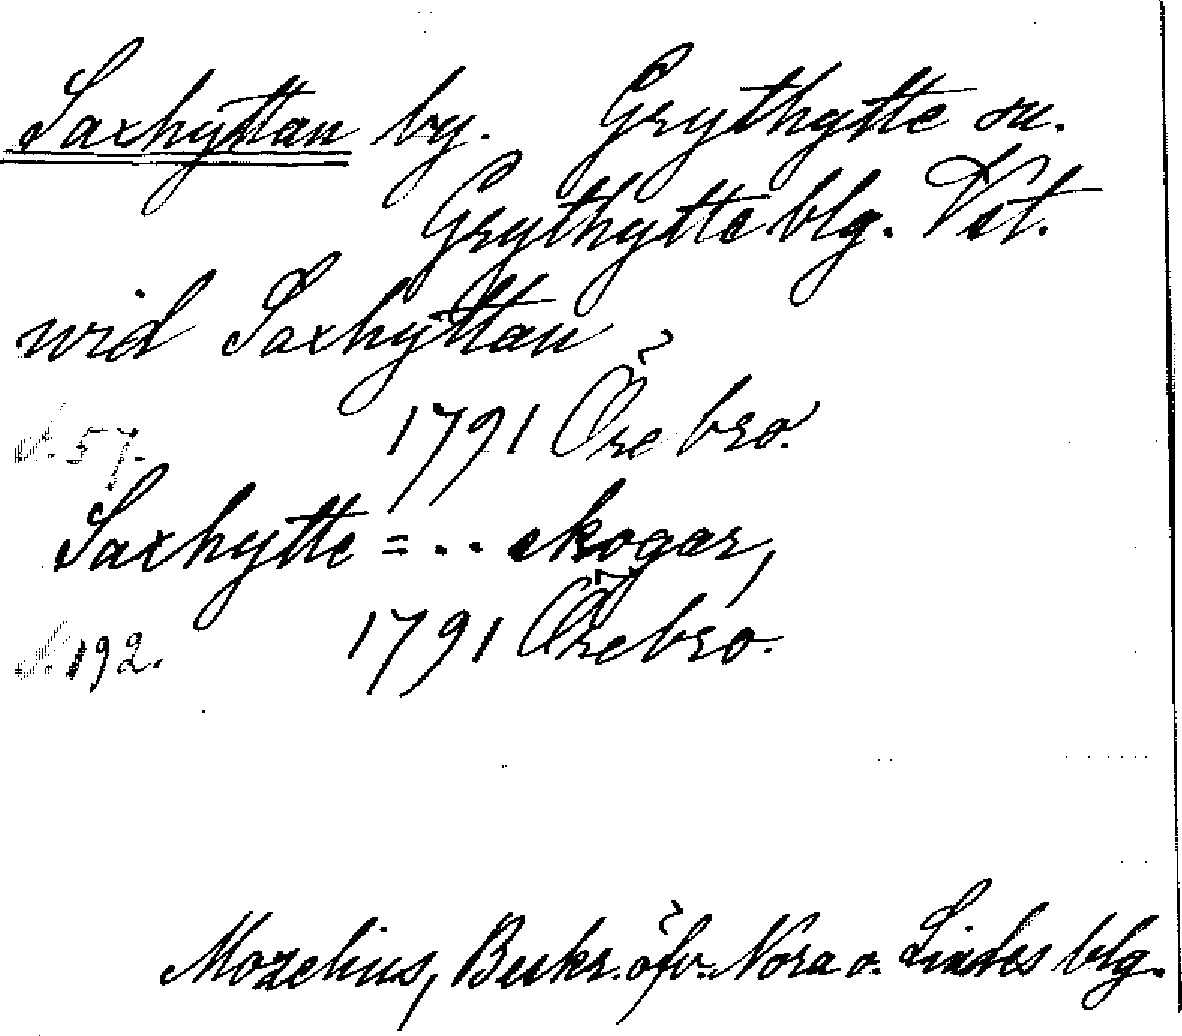 Saxhyttan by. Grythytte sn.
Grythytte blg. Vst.
wid Saxhyttan
s. 57. 1791 Örebro.
Saxhytte=.. skogar,
s. 192. 1791 Örebro.
Mozelius, Beskr. öfv. Nora o. Lindes blg.